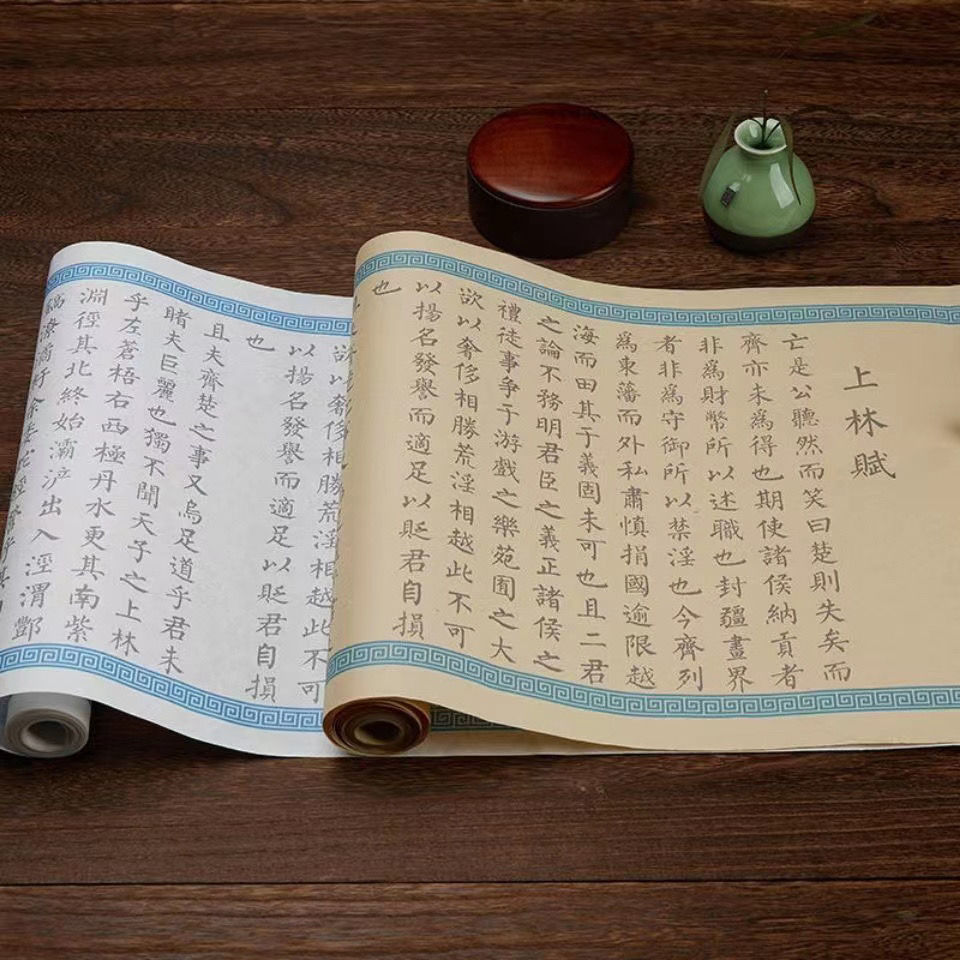 上林賦
亡是公聽然而笑曰楚則失矣而
齊亦未爲得也期使諸侯納貢者
非爲財幣所以述職也封疆畫界
者非爲守御所以禁淫也今齊列
爲東藩而外私肅慎捐國逾限越
海而田其于義固未可也且二君
之論不務明君臣之義正諸侯之
禮徒事爭于游戲之樂苑囿之大
欲以奢侈相勝荒淫相越此不可
以揚名發譽而適足以貶君自損
也
欲以奢侈相勝荒淫相越此不可
以揚名發譽而適足以貶君自損
也
且夫齊楚之事又烏足道乎君未
睹夫巨麗也獨不聞天子之上林
乎左蒼梧右西極丹水更其南紫
淵徑其北終始灞滻出入涇渭酆
鎬潦潏紆餘委蛇經營乎其